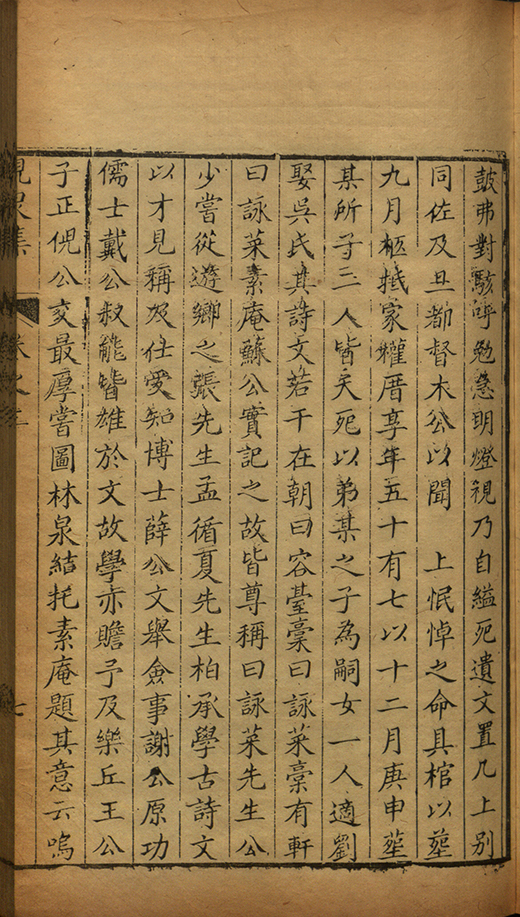 皷弗對駭呼勉慰明燈視乃自縊死遺文置几上別
同佐及旦都督木公以聞　上恨悼之命具棺以塟
九月柩抵家權厝享年五十有七以十二月庚申塟
某所子三人皆夭死以弟某之子為嗣女一人適劉
娶吳氏其詩文若干在朝曰容䑓稾曰詠菜稾有軒
曰詠菜素庵蘇公實記之故皆尊稱曰詠菜先生公
少嘗從遊鄉之張先生孟循夏先生柏承學古詩文
以才見稱及仕愛知博士薛公文舉僉事謝公原功
儒士戴公叔能皆雄於文故學亦贍予及樂丘王公
子正倪公交最厚嘗圖林泉結托素庵題其意云嗚